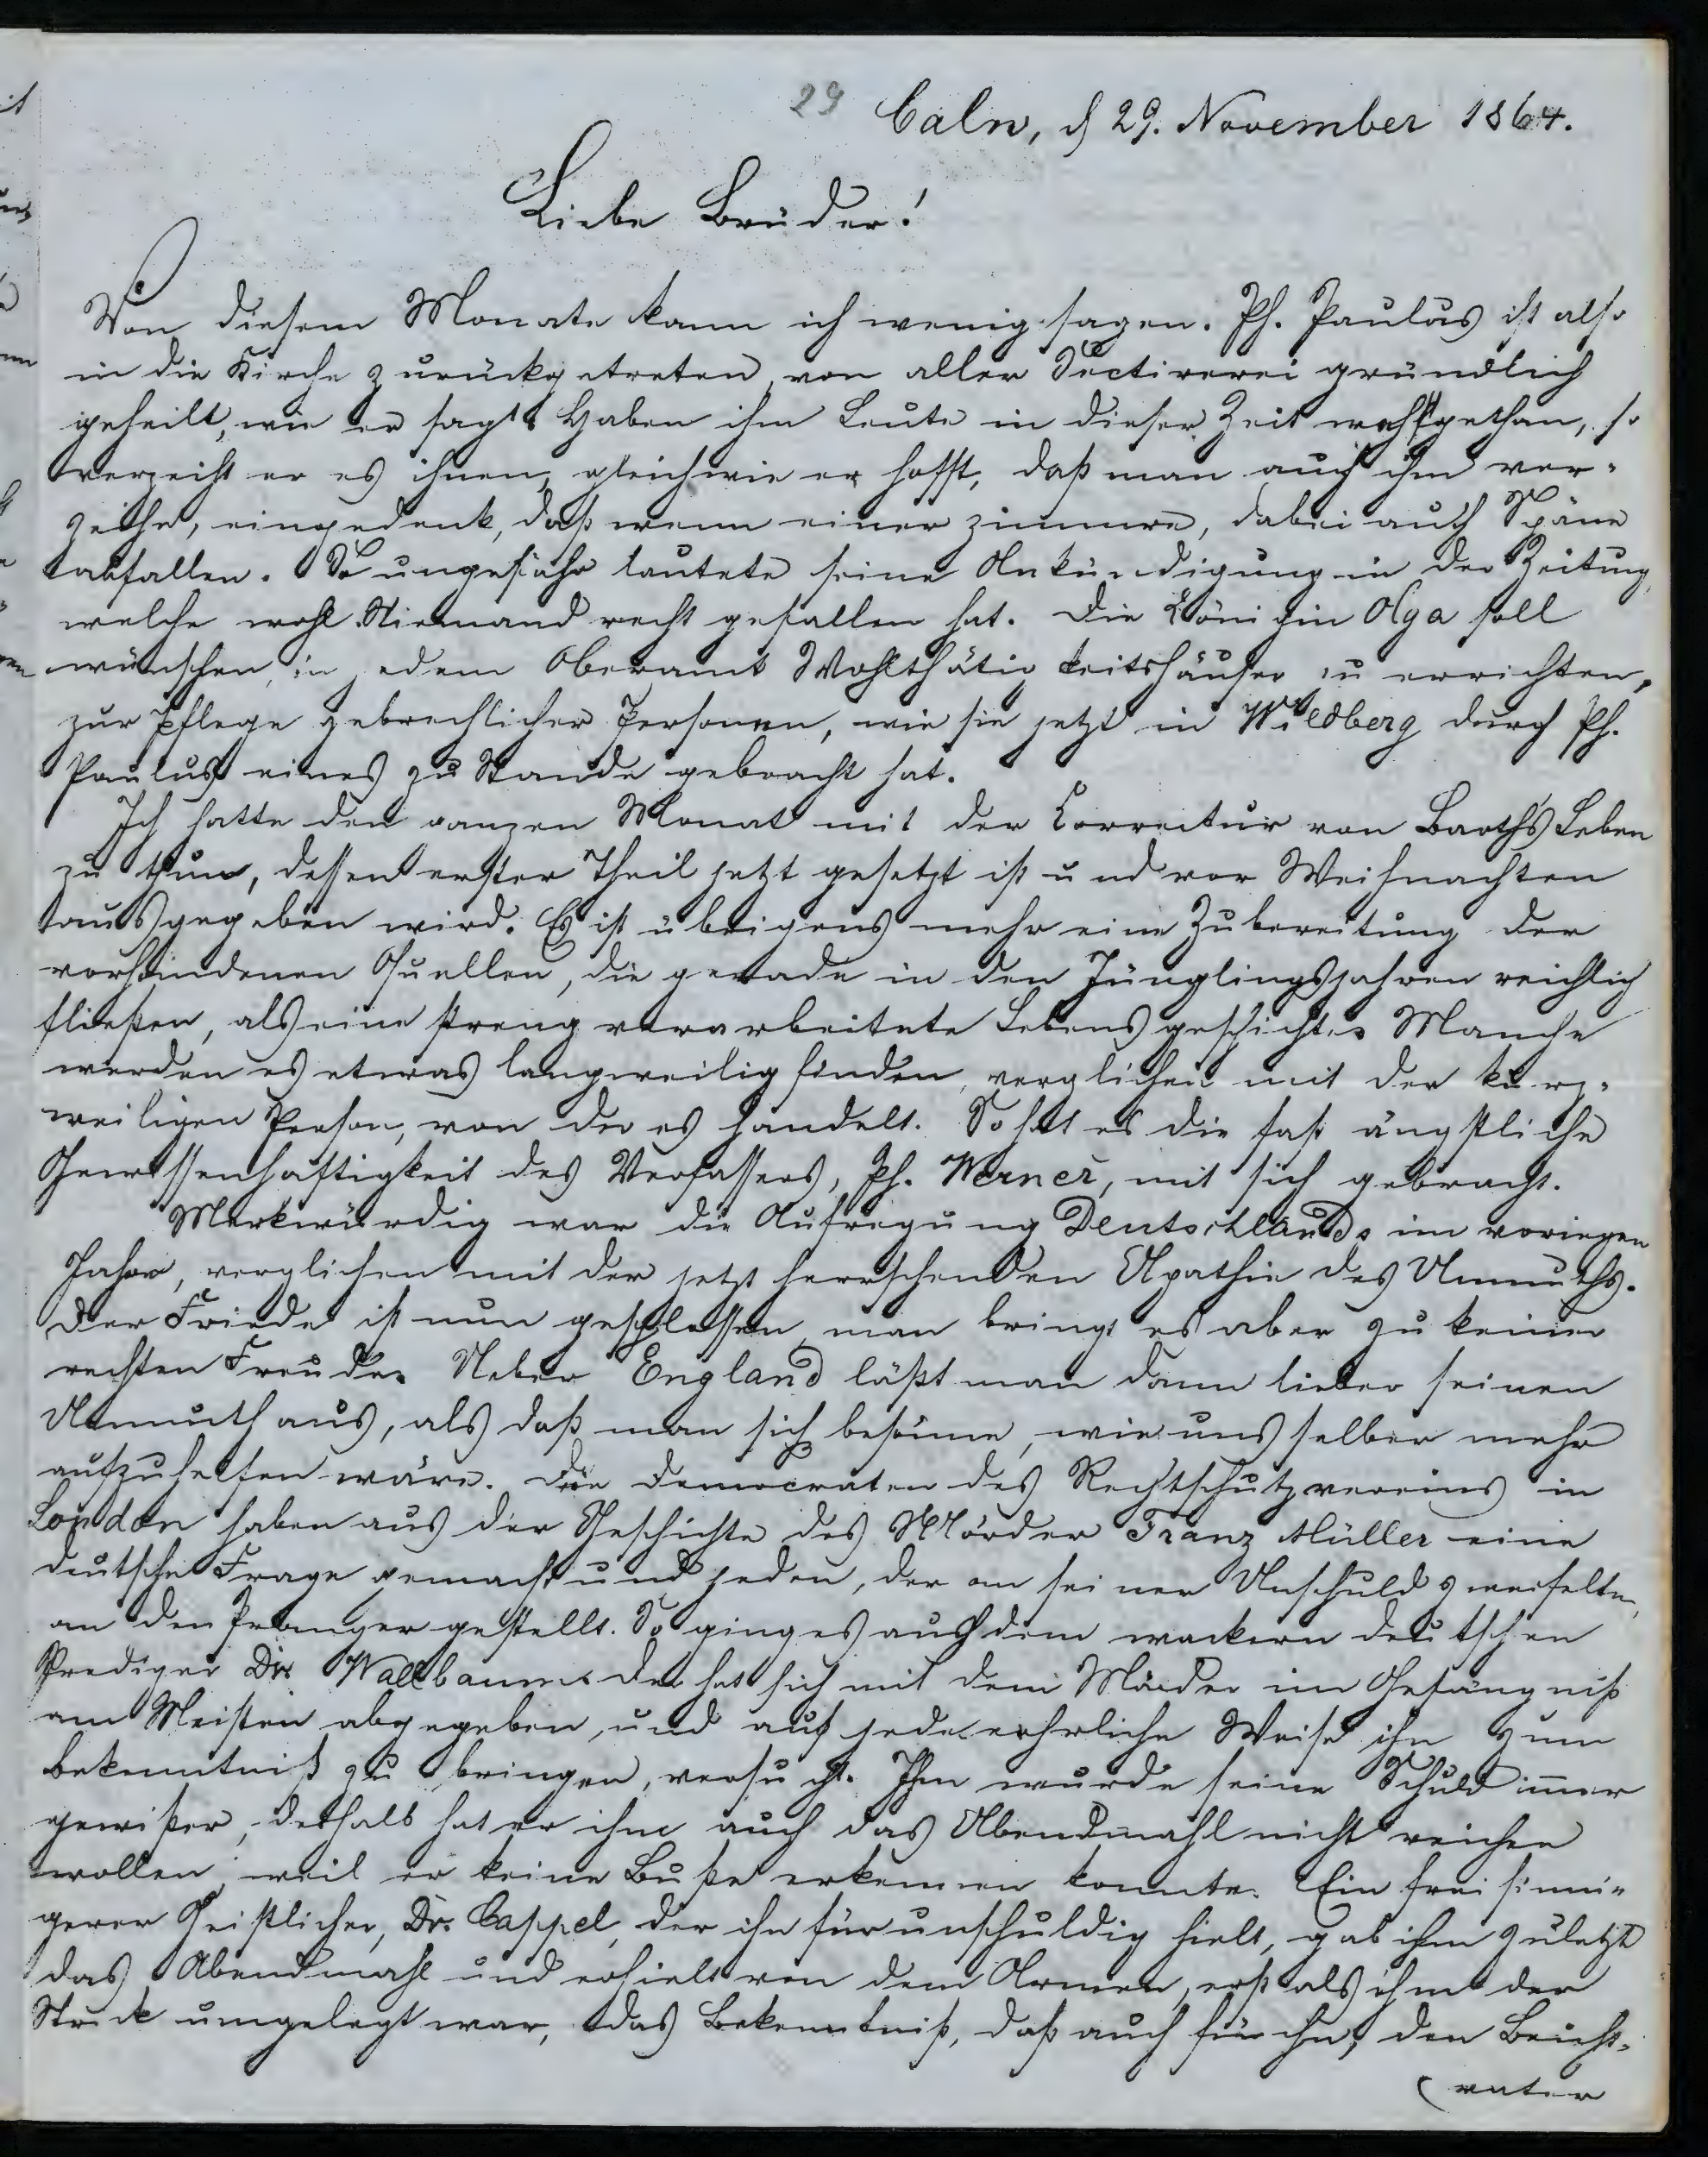 29 Calw, d 29. November 1864.
Liebe Brüder!
Von diesem Monate kann ich wenig sagen. Ph. Paulus ist also
in die Kirche zurückgetreten, von aller Sectirerei gründlich
geheilt, wie er sagt. Haben ihm Leute in dieser Zeit wehgethan, so
verzeiht er es ihnen, gleichwie er hofft, daß man auch ihm ver-
zeihe, eingedenk, daß wenn einer zimmre, dabei auch Späne
abfallen. So ungefähr lautete seine Ankündigung in der Zeitung,
welche wohl Niemand recht gefallen hat. Die Königin Olga soll
wünschen, in jedem Oberamt Wohlthätigkeitshäuser zu errichten,
zur Pflege gebrechlicher Personen, wie sie jetzt in Wildberg durch Ph.
Paulus eines zu Stande gebracht hat.
Ich hatte den ganzen Monat mit der Correctur von Barth's Leben
zu thun, dessen erster Theil jetzt gesetzt ist und vor Weihnachten
ausgegeben wird. Es ist übrigens mehr eine Zubereitung der
vorhandenen Quellen, die gerade in den Jünglingsjahren reichlich
fließen, als eine streng verarbeitete Lebensgeschichte. Manche
werden es etwas langweilig finden, verglichen mit der kurz-
weiligen Person, von der es handelt. So hat es die fast ängstliche
Gewissenhaftigkeit des Verfassers, Ph. Werner, mit sich gebracht.
Merkwürdig war die Aufregung Deutschlands im vorigen
Jahre, verglichen mit der jetzt herrschenden Apathie des Unmuths.
Der Friede ist nun geschlossen, man bringt es aber zu keiner
rechten Freude. Ueber England läßt man dann lieber seinen
Unmuth aus, als daß man sich besänne, wie uns selber mehr
aufzuhelfen wäre. Die Democraten des Rechtschutzvereins in
London haben aus der Geschichte des Mörder Franz Müller eine
deutsche Frage gemacht und jeden, der an seiner Unschuld zweifelte,
an den Pranger gestellt. So ging es auch dem wackern deutschen
Prediger Dr. Wallbaum. Der hat sich mit dem Mörder im Gefängniß
am Meisten abgegeben, und auf jede ehrliche Weise ihn zum
Bekenntniß zu bringen, versucht. Ihm wurde seine Schuld im̅er
gewißer, deshalb hat er ihm auch das Abendmahl nicht reichen
wollen, weil er keine Buße erkennen konnte. Ein freisinni-
gerer Geistlicher, Dr. Cappel, der ihn für unschuldig hielt, gab ihm zuletzt
das Abendmahl und erhielt von dem Armen, erst als ihm der
Strick umgelegt war, das Bekenntniß, daß auch für ihn, den Beicht-
(vater